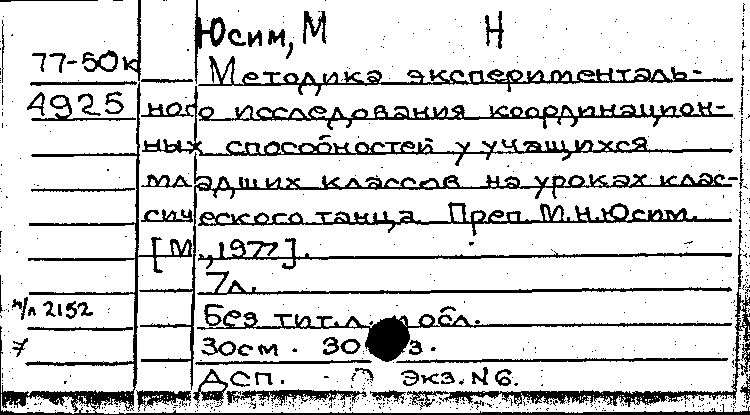 Юсим, М Н
77-50к
4925
Методика эксперименталь-
ного исследования координацион-
ных способностей у учащихся
младших классов на уроках клас-
сического танца. Преп. М.Н.Юсим.
[М.,1977].
7л.
м/л 2152
Без тит.л. и обл.
7
30см. 30 э.
ДСП. Экз.N6.